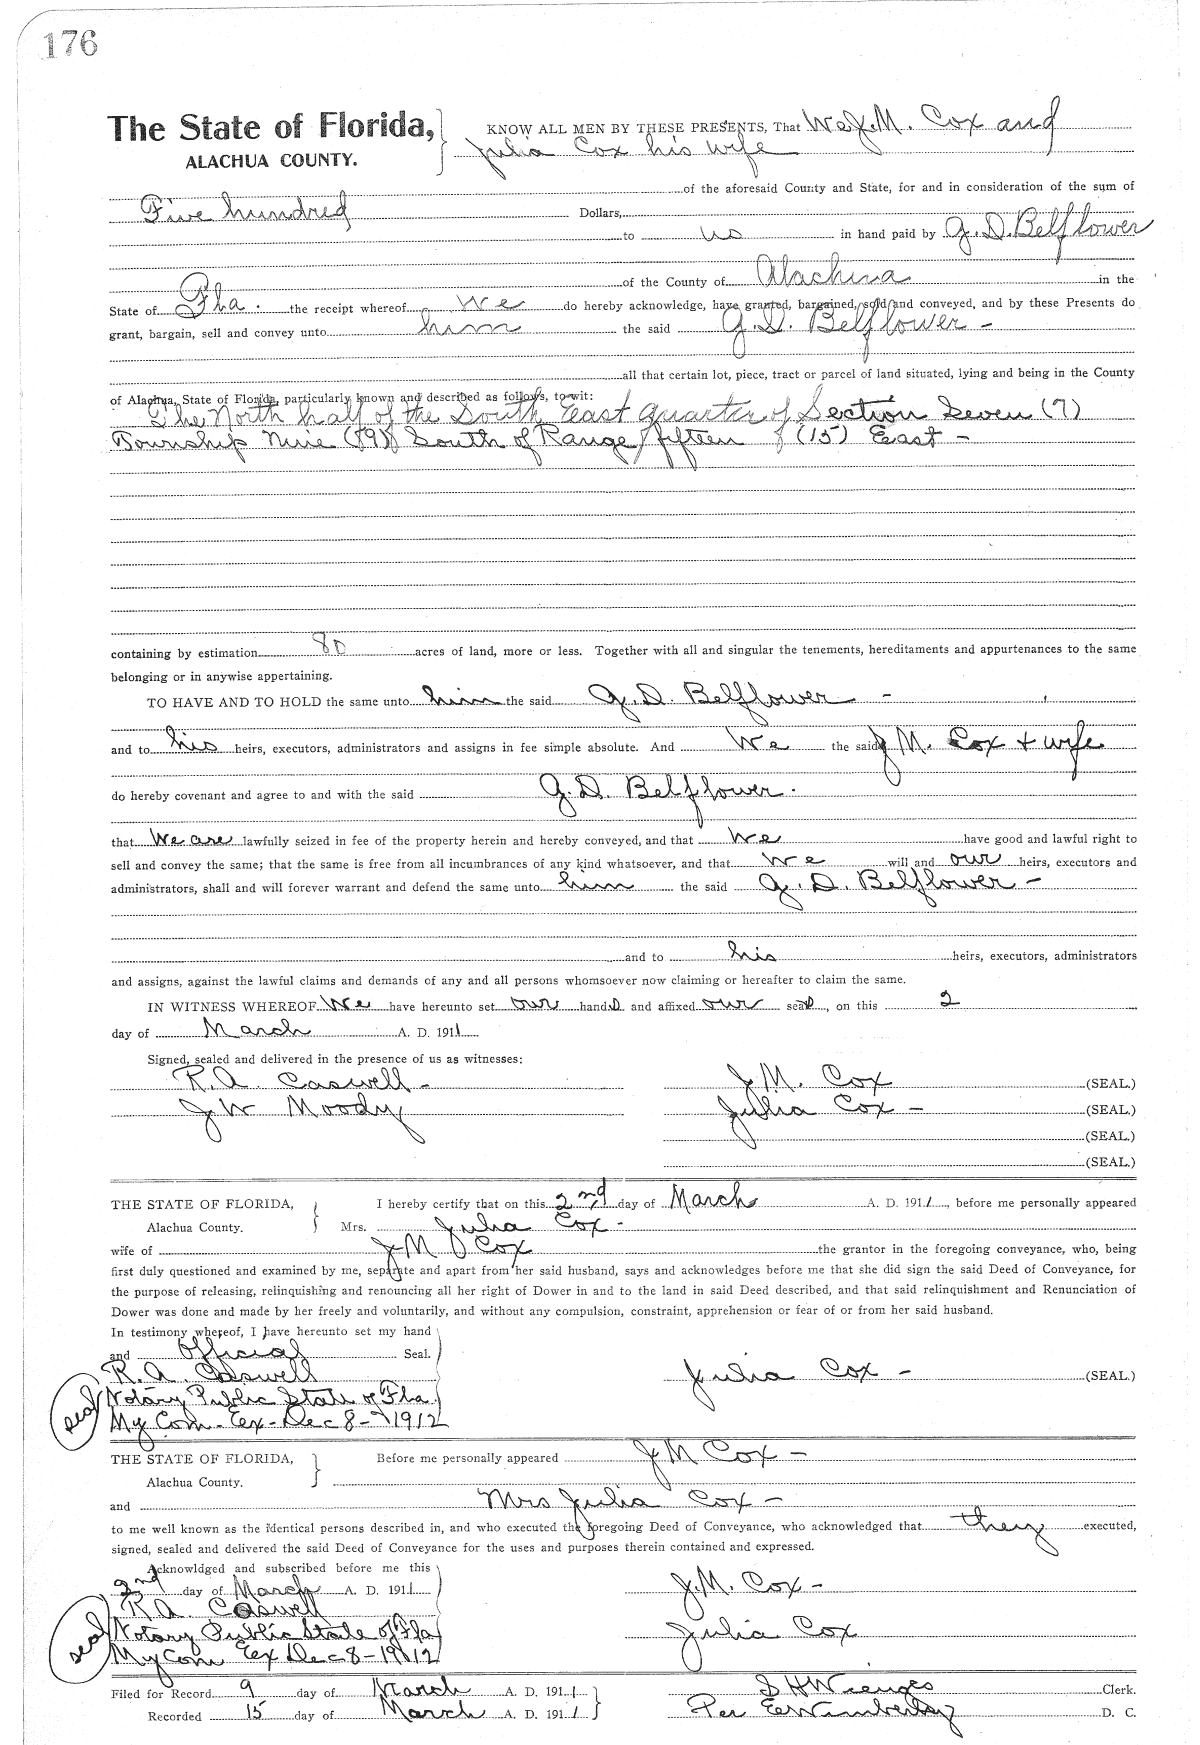 176
The State of Florida,
ALACHUA COUNTY.
KNOW ALL MEN BY THESE PRESENTS, That We J. M. Cox and
Julia Cox his wife
of the aforesaid County and State, for and in consideration of the sum of
Five hundred Dollars,
to us in hand paid by G. D. Belflower
of the County of Alachua in the
State of Fla. the receipt whereof We do hereby acknowledge, have granted, bargained, sold and conveyed, and by these Presents do
grant, bargain, sell and convey unto him the said G. D. Belflower -
all that certain lot, piece, tract or parcel of land situated, lying and being in the County
of Alachua, State of Florida, particularly known and described as follows, to-wit:
The North half of the South East Quarter of Section Seven (7)
Township Nine (9) South of Range fifteen (15) East -
containing by estimation 80 acres of land, more or less. Together with all and singular the tenements, hereditaments and appurtenances to the same
belonging or in anywise appertaining.
TO HAVE AND TO HOLD the same unto him the said G. D Belflower -
and to his heirs, executors, administrators and assigns in fee simple absolute. And We the said J M. Cox + wife
do hereby covenant and agree to and with the said G. D. Belflower.
that We are lawfully seized in fee of the property herein and hereby conveyed, and that We have good and lawful right to
sell and convey the same; that the same is free from all incumbrances of any kind whatsoever, and that We will and our heirs, executors and
administrators, shall and will forever warrant and defend the same unto him the said G. D. Belflower -
and to his heirs, executors, administrators
and assigns, against the lawful claims and demands of any and all persons whomsoever now claiming or hereafter to claim the same.
IN WITNESS WHEREOF We have hereunto set our hands and affixed our seal, on this 2
day of March A. D. 1911
Signed, sealed and delivered in the presence of us as witnesses:
R. A. Caswell - J. M. Cox (SEAL.)
J W Moody Julia Cox - (SEAL.)
(SEAL.)
(SEAL.)
THE STATE OF FLORIDA, I hereby certify that on this 2nd day of March A. D. 1911, before me personally appeared
Alachua County. Mrs. Julia Cox -
wife of J M Cox the grantor in the foregoing conveyance, who, being
first duly questioned and examined by me, separate and apart from her said husband, says and acknowledges before me that she did sign the said Deed of Conveyance, for
the purpose of releasing, relinquishing and renouncing all her right of Dower in and to the land in said Deed described, and that said relinquishment and Renunciation of
Dower was done and made by her freely and voluntarily, and without any compulsion, constraint, apprehension or fear of or from her said husband.
In testimony whereof, I have hereunto set my hand
and Official Seal.
R. A. Caswell Julia Cox - (SEAL.)
seal Notary Public State of Fla.
My Com. Ex - Dec 8 - 1912
THE STATE OF FLORIDA, Before me personally appeared J M Cox -
Alachua County.
and Mrs Julia Cox -
to me well known as the identical persons described in, and who executed the foregoing Deed of Conveyance, who acknowledged that they executed,
signed, sealed and delivered the said Deed of Conveyance for the uses and purposes therein contained and expressed.
Acknowldged and subscribed before me this
2nd day of March A. D. 1911 J. M. Cox -
R A. Caswell
seal Notary Public State of Fla Julia Cox
My Com Ex Dec 8 - 1912
Filed for Record 9 day of March A. D. 1911 S H Wienges Clerk.
Recorded 15 day of March A. D. 1911 Per E E Wimberly D. C.